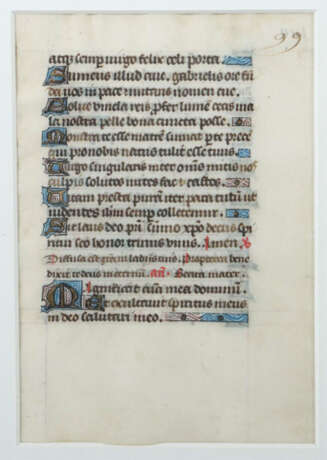 99
atq; semp virgo felix celi porta.
Sumens illud aue. gabrielis ore fu
da nos in pace mutans nomen eue.
Solue vincla reis. pfer lumē cecis ma
la nostra pelle bona cuncta posce.
Monstra te esse matrē sumat per te prece
qui pro nobis natus tulit esse tuus.
Virgo singularis inter oms mitis nos
culpis solutos mites fac et castos.
Vitam presta puram iter para tutū ut
videntes ihm semp colletemur.
Sit laus deo pri sumo xpo decus spi
ritui sco honor trinus vnus. Amen. V
Diffusa est gratia in labijs tuis. Propterea bene
dixit te deus in eternū. an. Beata mater.
Magnificat aīa mea dominū.
Et exultauit spiritus meus
in deo salutari meo.